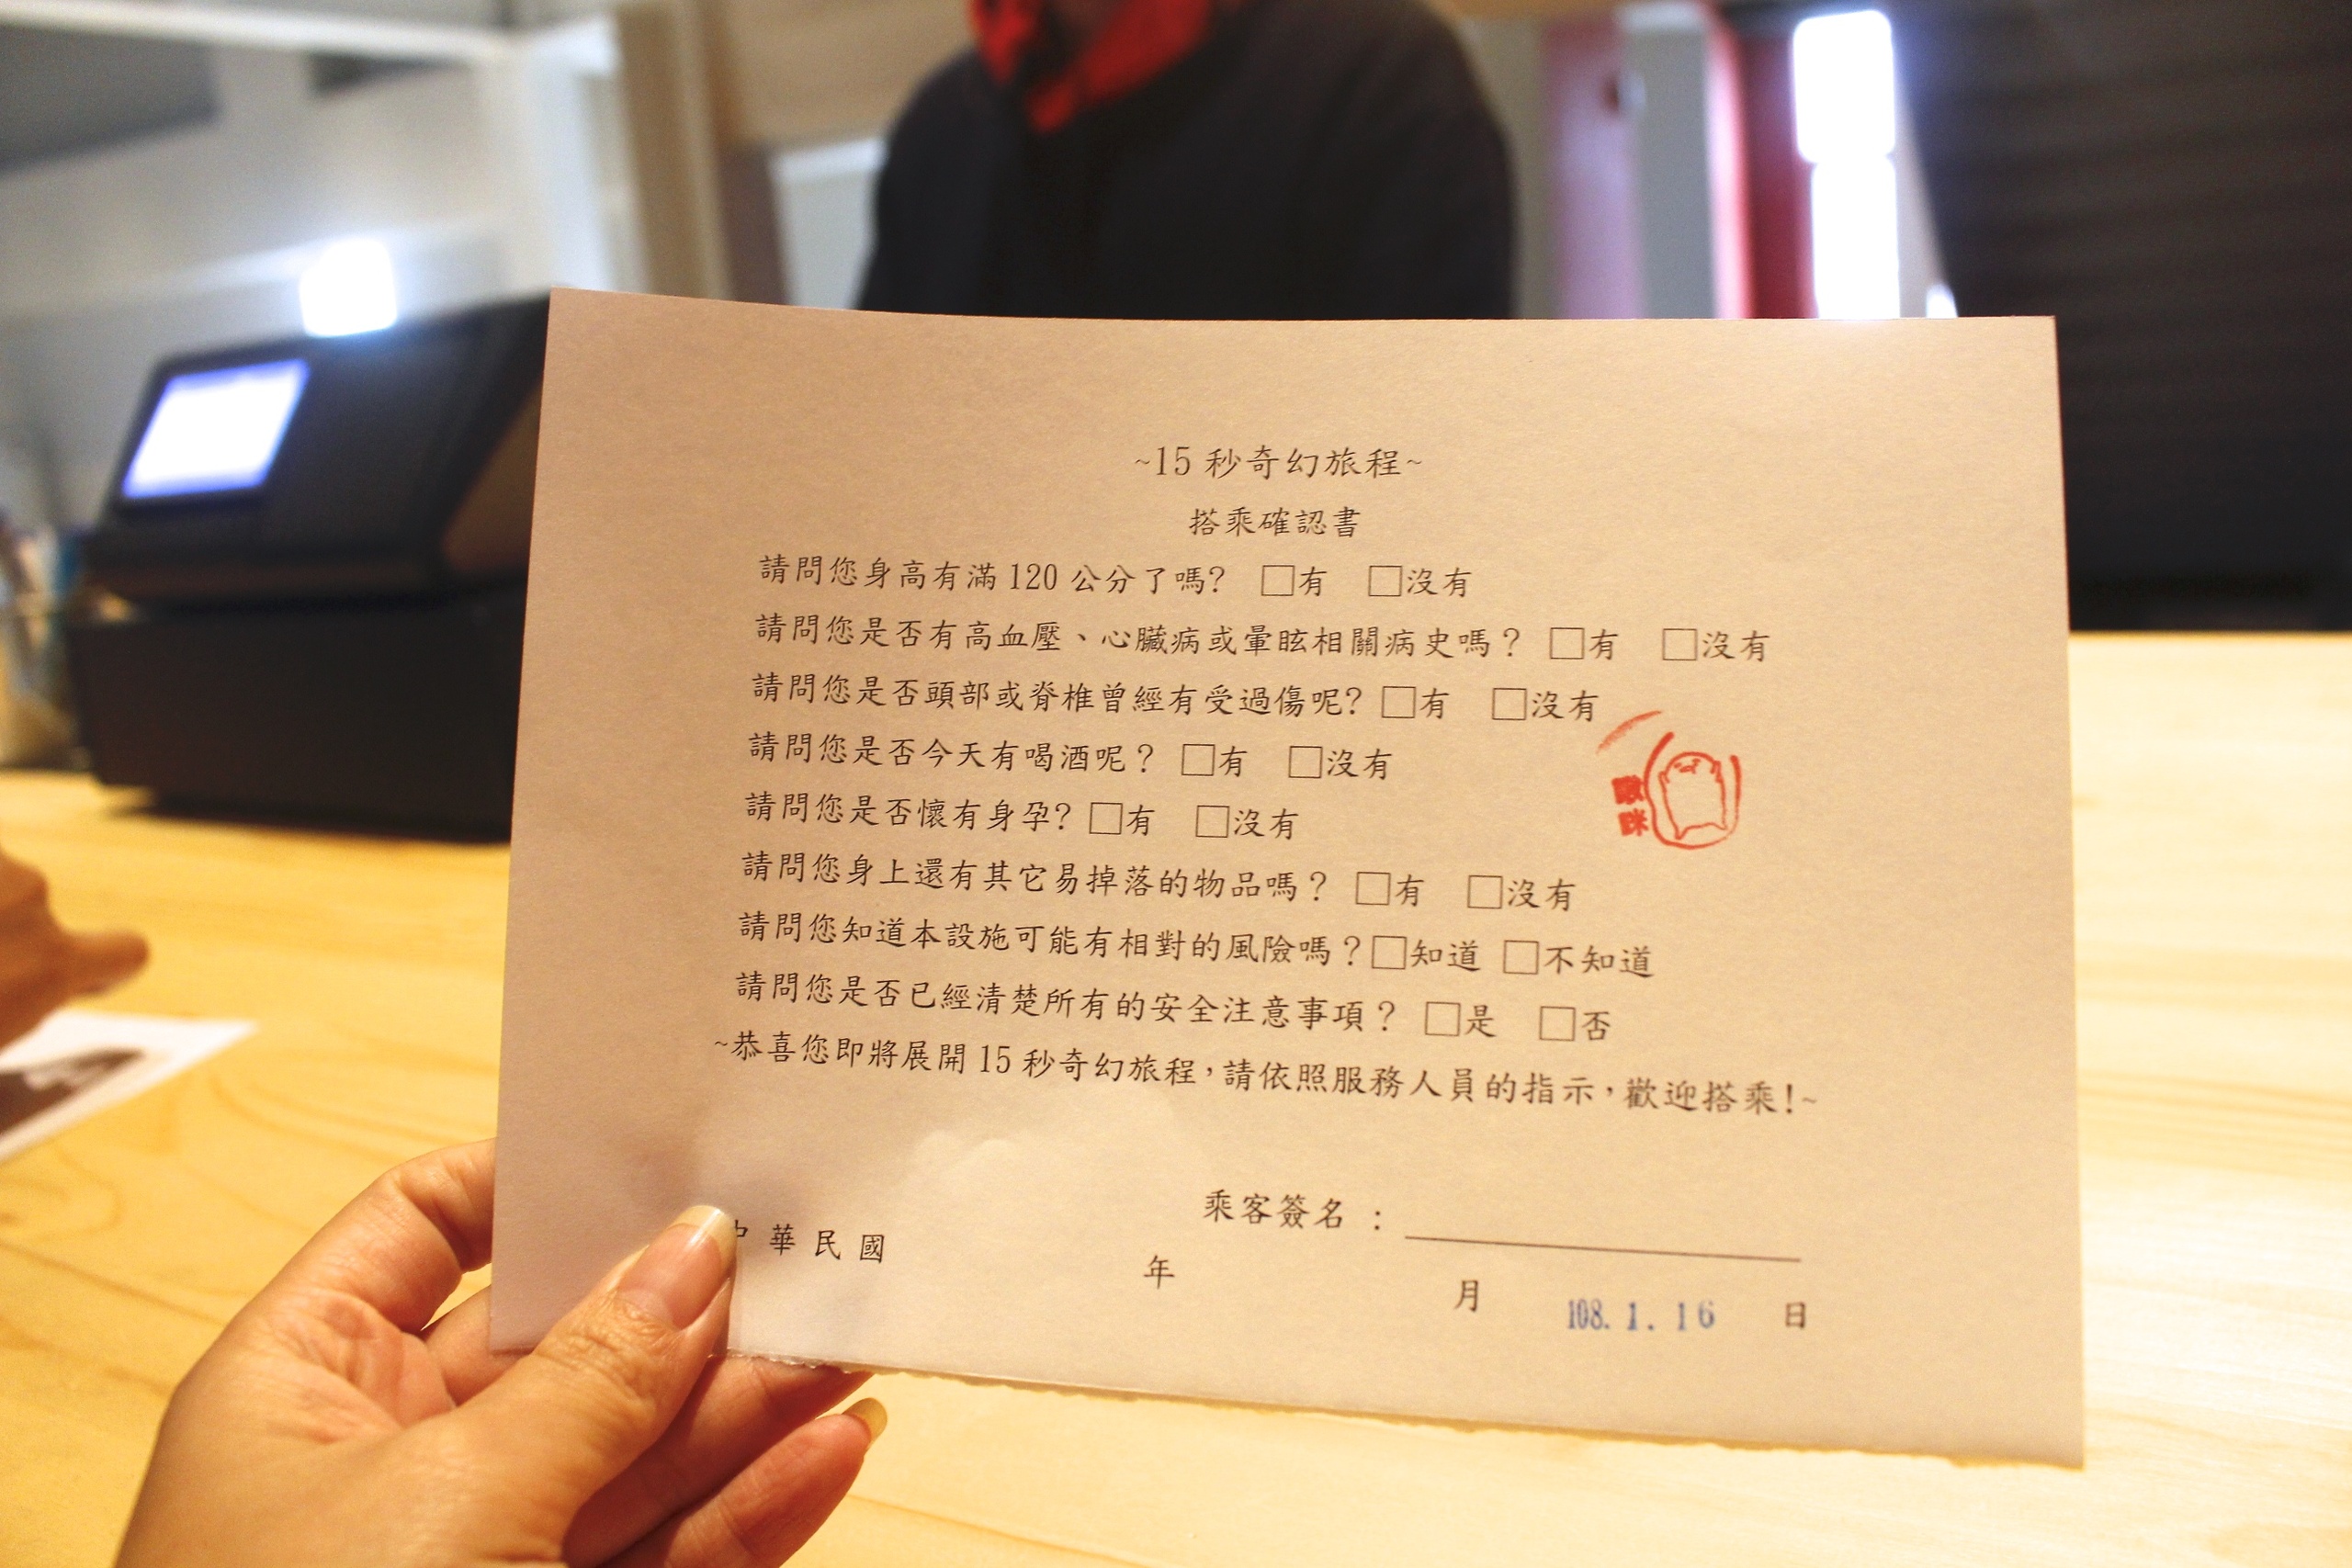 ~15 秒奇幻旅程~
搭乘確認書
請問您身高有滿 120 公分了嗎? □有 □沒有
請問您是否有高血壓、心臟病或暈眩相關病史嗎？ □有 □沒有
請問您是否頭部或脊椎曾經有受過傷呢? □有 □沒有
請問您是否今天有喝酒呢？ □有 □沒有
請問您是否懷有身孕? □有 □沒有
請問您身上還有其它易掉落的物品嗎？ □有 □沒有
請問您知道本設施可能有相對的風險嗎？□知道 □不知道
請問您是否已經清楚所有的安全注意事項？ □是 □否
~恭喜您即將展開 15 秒奇幻旅程，請依照服務人員的指示，歡迎搭乘!~
乘客簽名：
中華民國 年 月 108.1.16 日